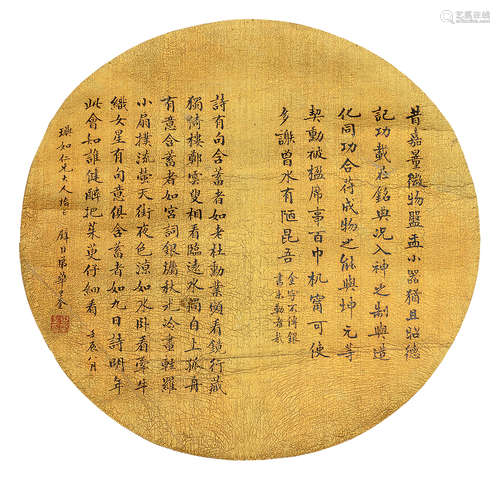 昔嘉量微物盤盂小器猶且昭德
記功載在銘典況入神之制與造
化同功合符成物之能與坤元等
契勳被楹席事百巾机寧可使
多謝曾水有陋昆吾
金字不傳銀
書未勒者哉
詩有句含蓄者如老杜勳業頻看鏡行藏
獨倚樓鄭雲叟相看臨遠水獨自上孤舟
有意含蓄者如宮詞銀燭秋光冷畫屏輕羅
小扇撲流螢天街夜色涼如水卧看牽牛
織女星有句意俱含蓄者如九日詩明年
此會知誰健醉把茱萸仔細看 壬辰八月
仁兄大人